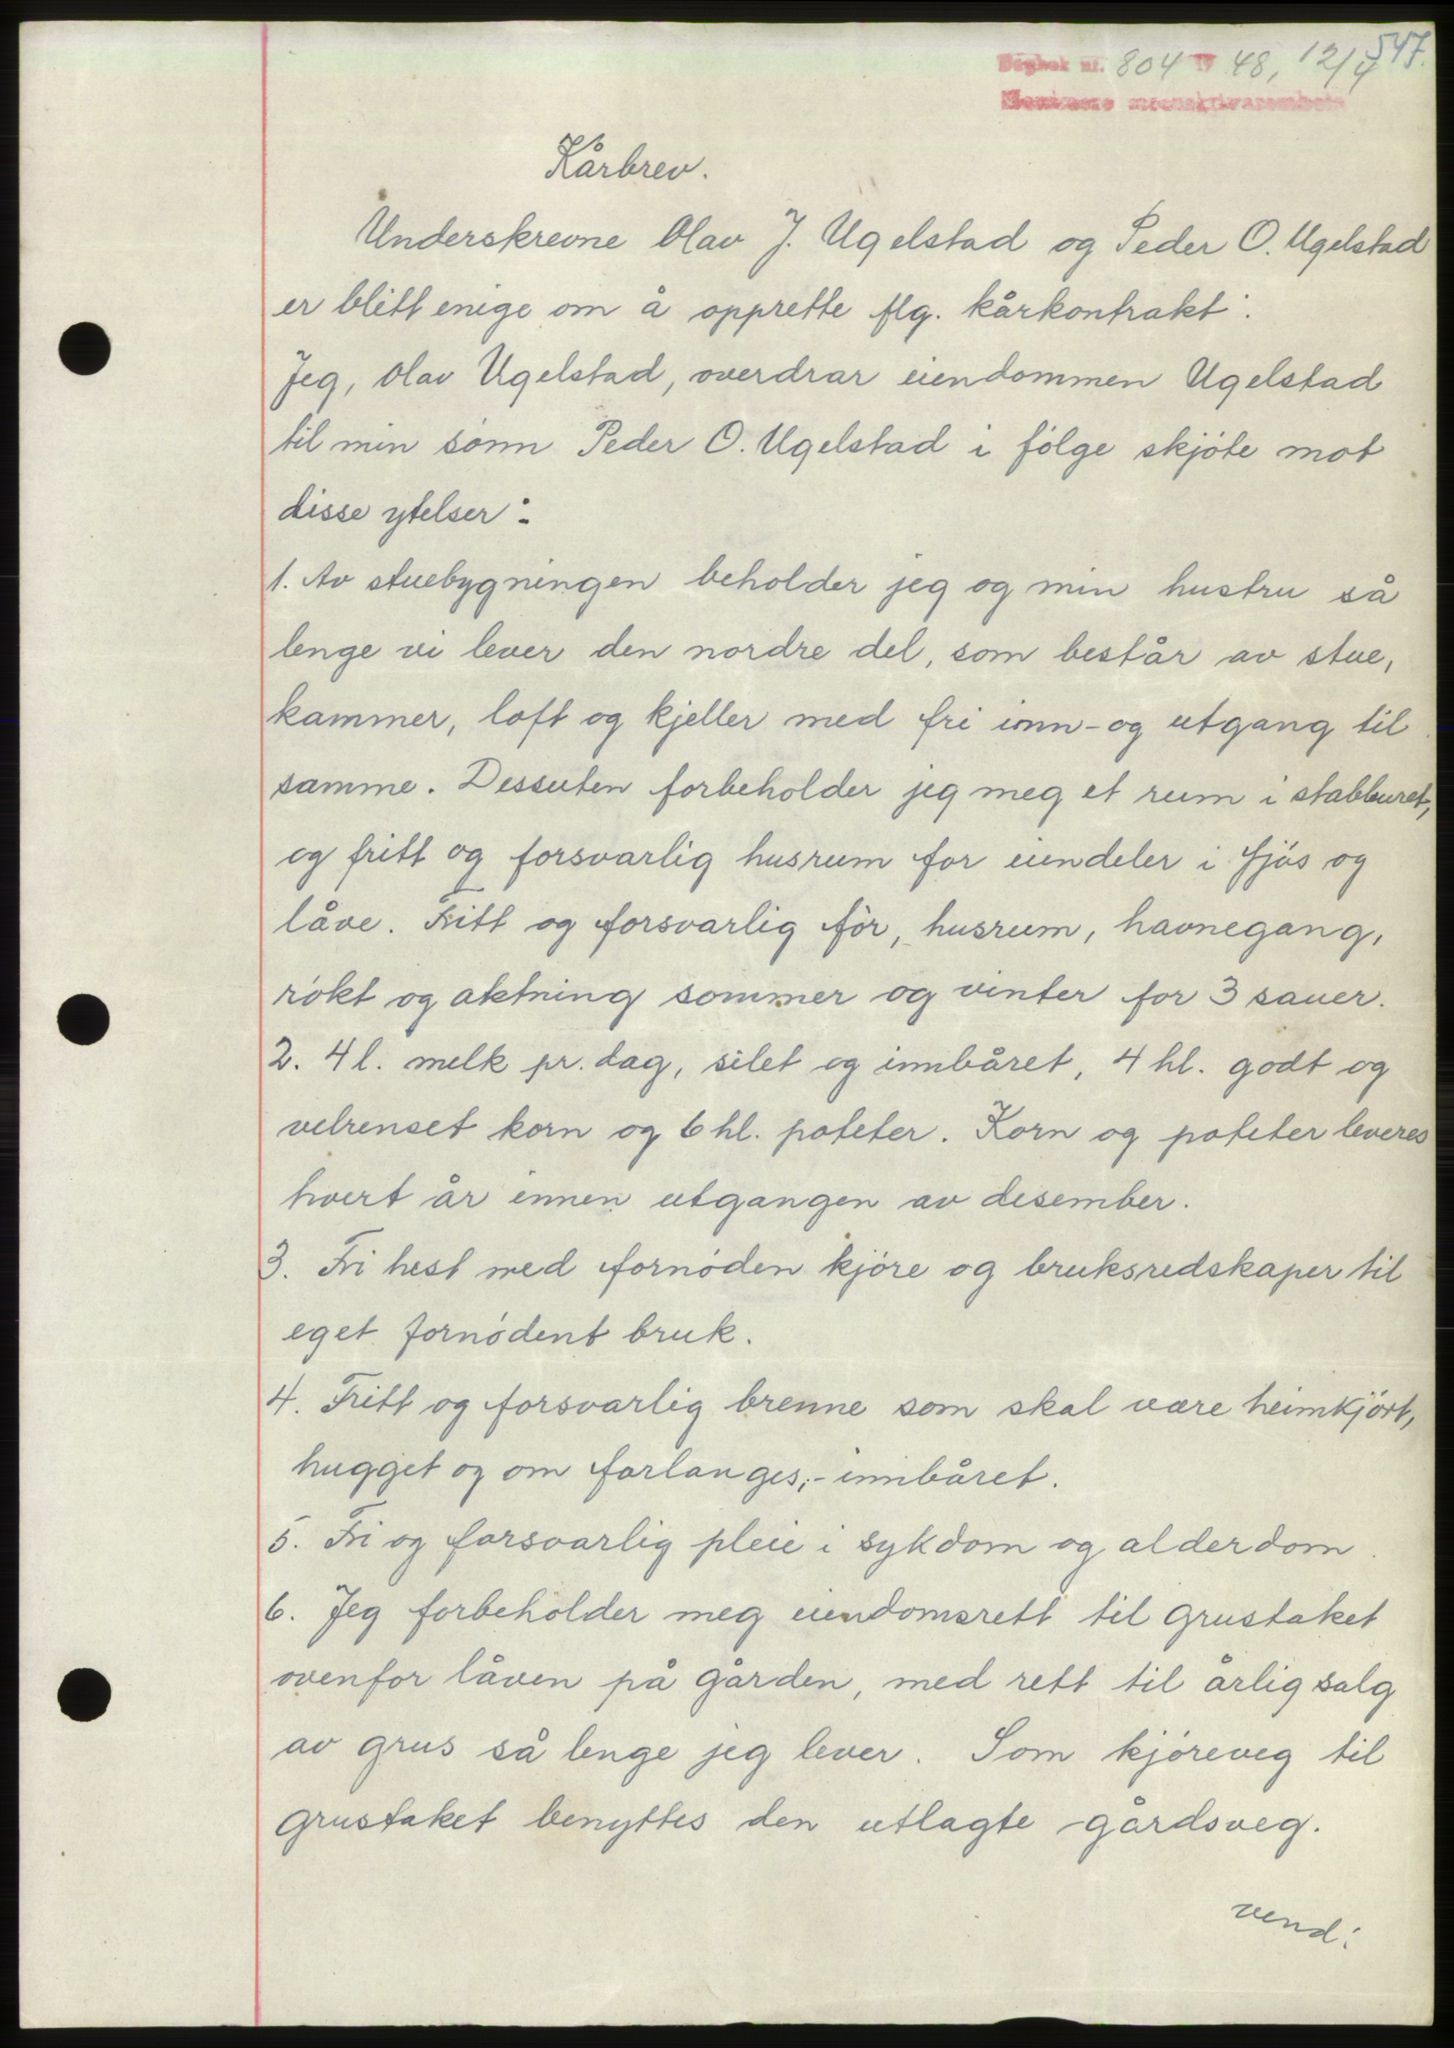 547.
Dagbok nr. 804 19 48, 12/4
Kårbrev.
Underskrevne Olav J. Ugelstad og Peder O. Ugelstad
er blitt enige om å opprette flg. kårkontrakt:
Jeg, Olav Ugelstad, overdrar eiendommen Ugelstad
til min sønn Peder O. Ugelstad i følge skjøte mot
disse ytelser:
1. Av stuebygningen beholder jeg og min hustru så
lenge vi lever den nordre del, som består av stue,
kammer, loft og kjeller med fri inn- og utgang til
samme. Dessuten forbeholder jeg meg et rum i stabburet,
og fritt og forsvarlig husrum for eiendeler i fjøs og
låve. Fritt og forsvarlig fôr, husrum, havnegang,
røkt og aktning sommer og vinter for 3 sauer.
2. 4 l. melk pr. dag, silet og innbåret, 4 hl. godt og
velrenset korn og 6 hl. poteter. Korn og poteter leveres
hvert år innen utgangen av desember.
3. Fri hest med fornøden kjøre og bruksredskaper til
eget fornødent bruk.
4. Fritt og forsvarlig brenne som skal være heimkjørt,
hugget og om forlanges,- innbåret.
5. Fri og forsvarlig pleie i sykdom og alderdom.
6. Jeg forbeholder meg eiendomsrett til grustaket
ovenfor låven på gården, med rett til årlig salg
av grus så lenge jeg lever. Som kjøreveg til
grustaket benyttes den utlagte gårdsveg.
vend: